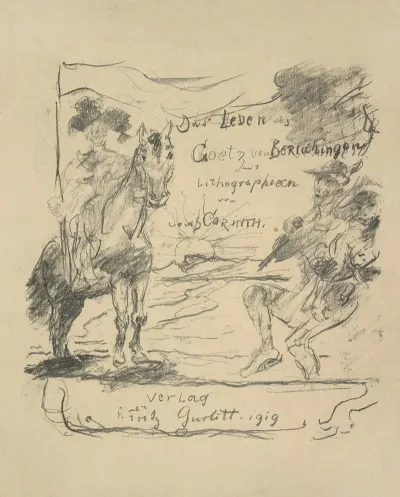 Das Leben des
Goetz von Berlichingen
in
Lithographieen
von
Lovis CORINTH.
Verlag
Fritz Gurlitt. 1919